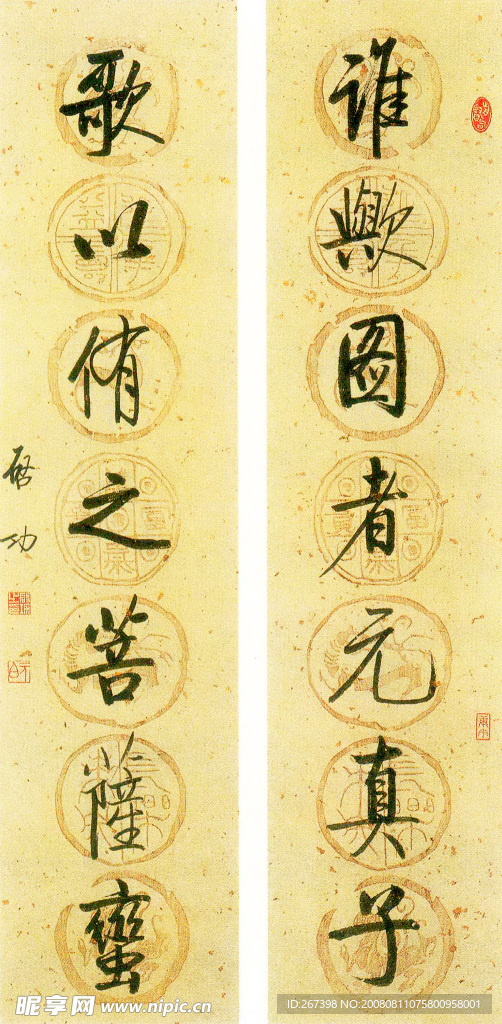 谁歟图者元真子
歌以侑之菩薩蠻
启功
昵享网 www.nipic.cn
ID:267398 NO:20080811075800958001